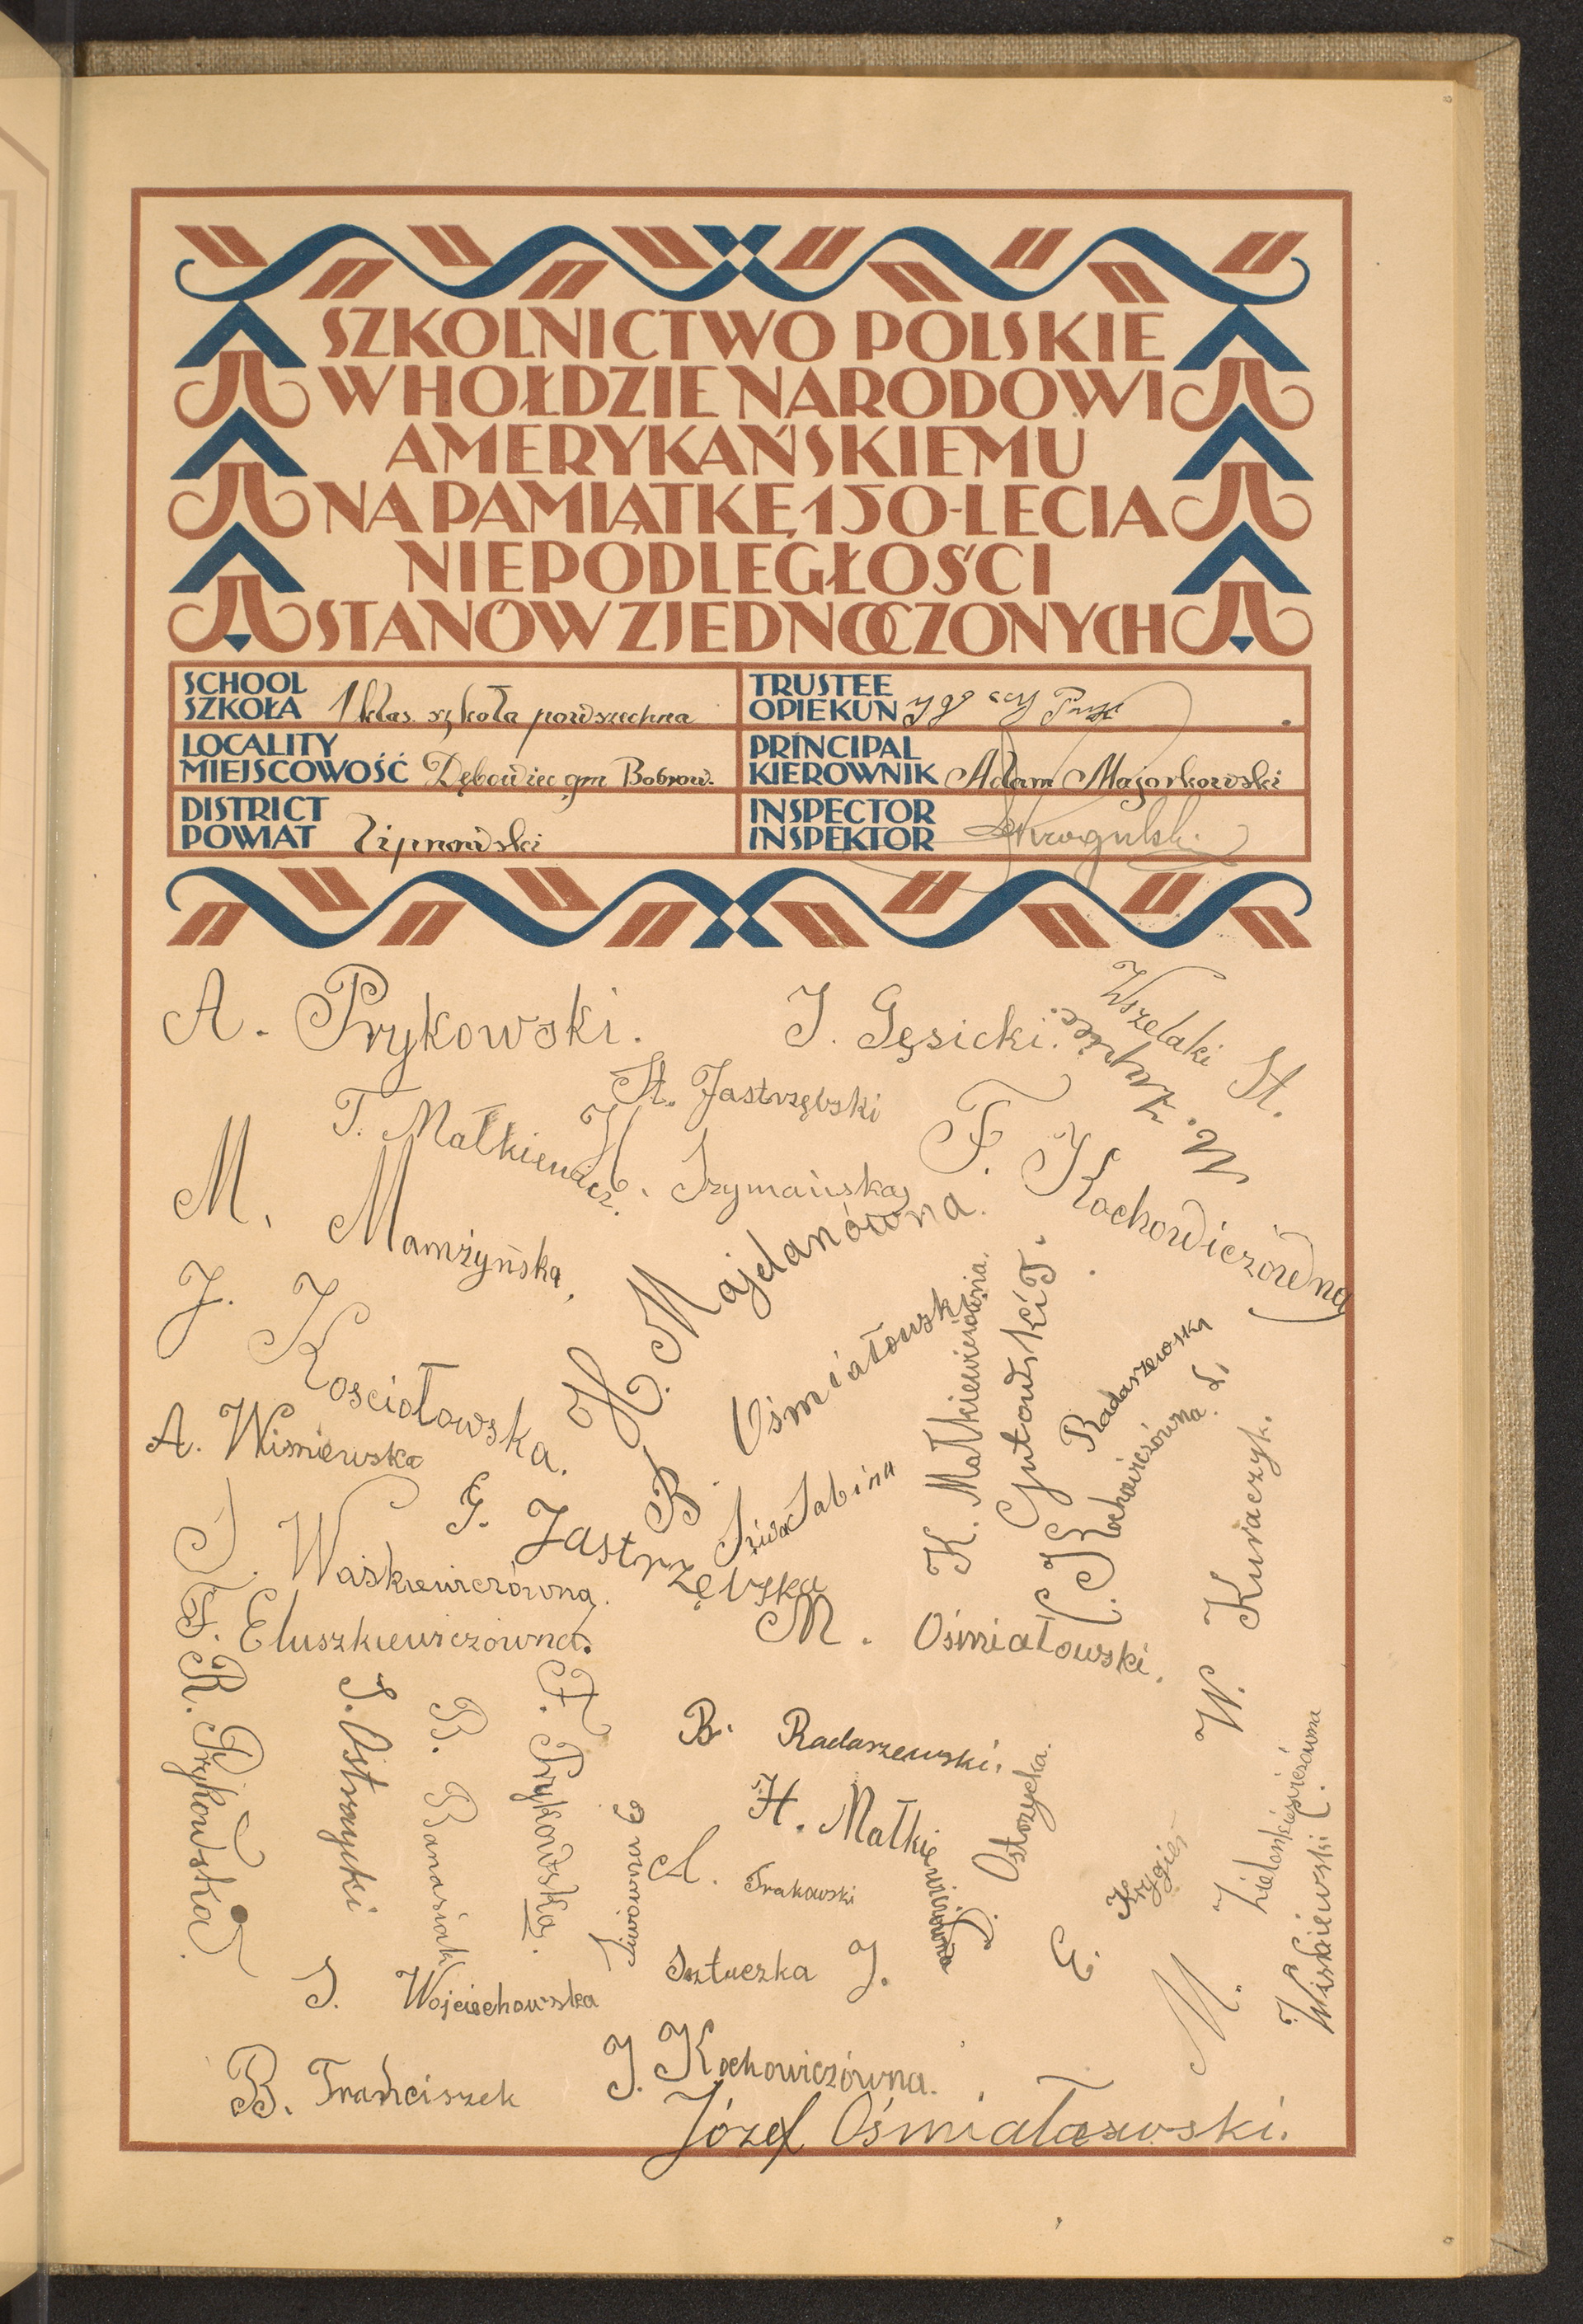 SZKOLNICTWO POLSKIE
W HOŁDZIE NARODOWI
AMERYKAŃSKIEMU
NA PAMIĄTKĘ 150-LECIA
NIEPODLEGŁOŚCI
STANÓW ZJEDNOCZONYCH
SCHOOL
SZKOŁA 1 klas. szkoła powszechna
TRUSTEE
OPIEKUN
LOCALITY
MIEJSCOWOŚĆ Dębowiec gm Bobrow.
PRINCIPAL
KIEROWNIK Adam Majorkowski
DISTRICT
POWIAT Lipnowski
INSPECTOR
INSPEKTOR
A. Prykowski.
J. Gęsicki.
Wszelaki St.
St. Jastrzębski
T. Małkiewicz.
H. Szymańska
F. Kochowiczówna
M. Mamżyńska,
H. Majdanówna.
J. Kosciołowska.
B. Ośmiałowski
K. Małkiewiczówna.
Gutowski T.
Radaszewska
Kochowiczówna L.
A. Wisniewska
G. Jastrzębska
Sabina
W. Kuraczyk.
J. Waskiewiczówna.
F. Eluszkiewiczówna.
M. Ośmiałowski.
R. Prykowska.
S. Ostrzycki
B. Banasiak
A. Prykowska.
B. Radaszewski.
H. Małkiewiczówna
J. Ostrzycka.
A. Trakowski
E. Krygier
M. Zielonkiewiczówna
Sztuczka J.
J. Wojciechowska
B. Franciszek
J. Kochowiczówna.
Józef Ośmiałowski.